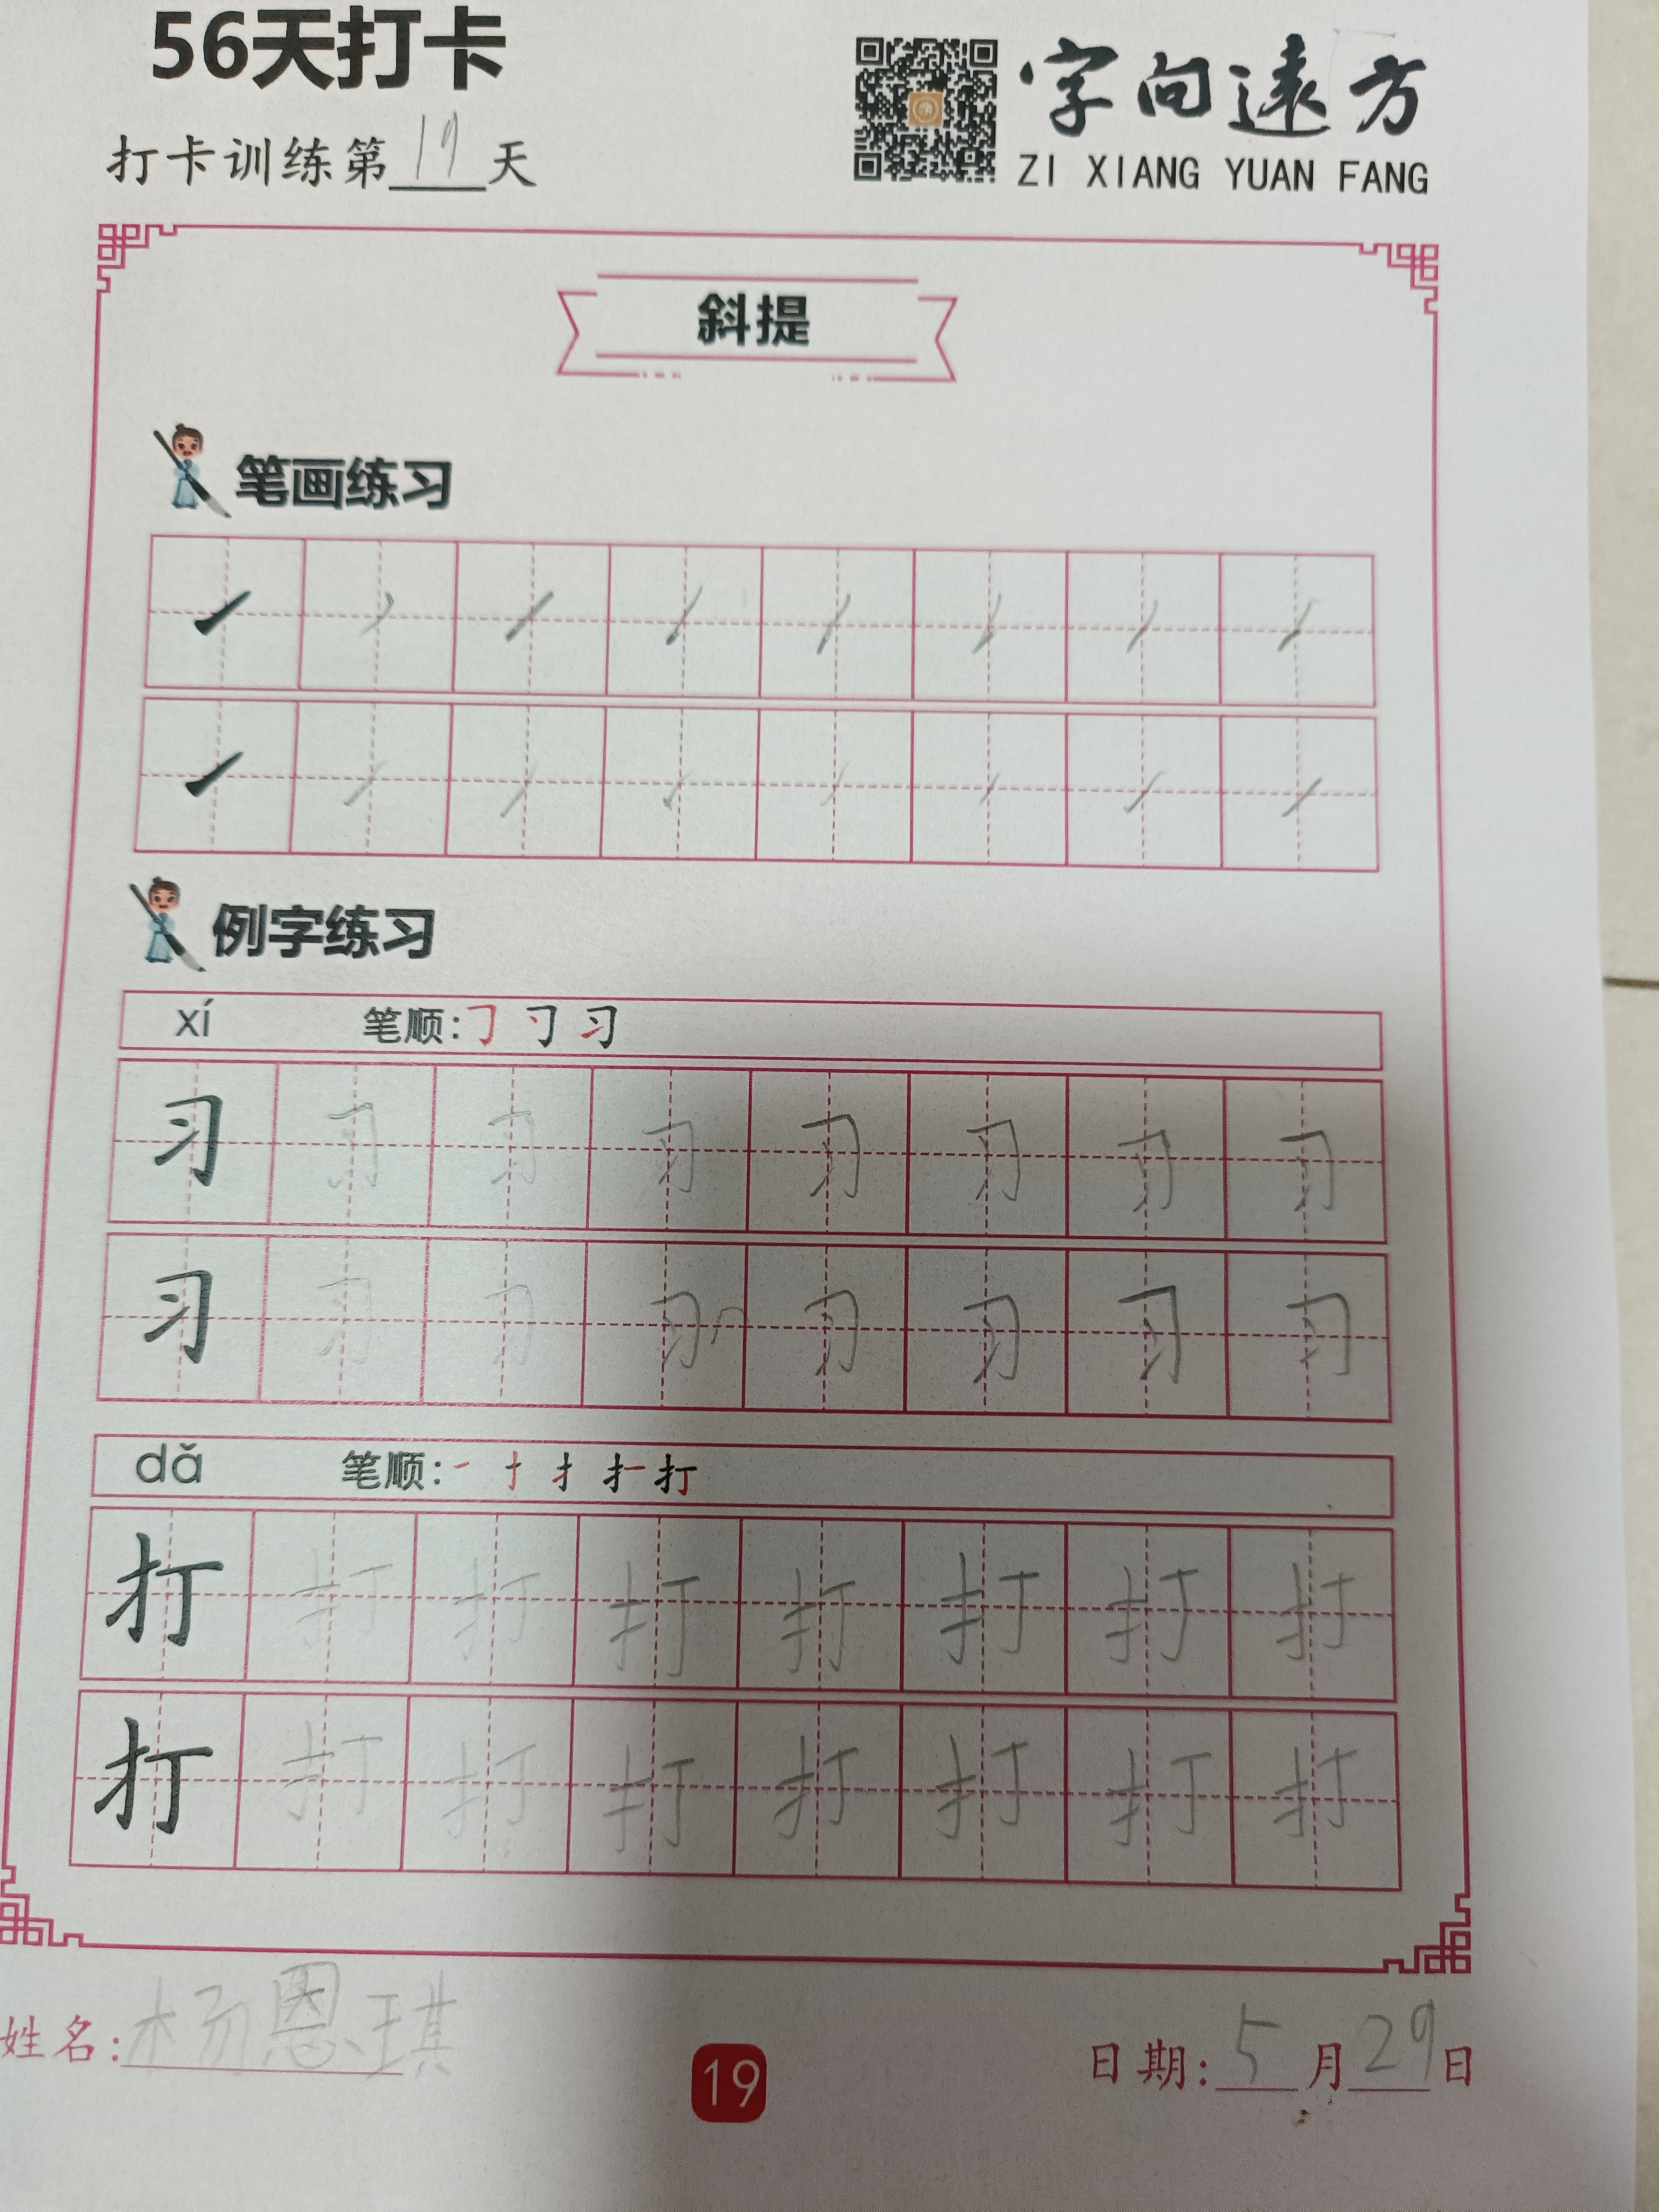 56天打卡
打卡训练第19天
字向遠方
ZI XIANG YUAN FANG
斜提
笔画练习
例字练习
xí 笔顺:㇆ 刁 习
习 习 习 习 习 习 习 习
习 习 习 习 习 习 习 习
dǎ 笔顺:一 十 扌 扌一 打
打 打 打 打 打 打 打 打
打 打 打 打 打 打 打 打
姓名:杨恩琪
19
日期:5月29日